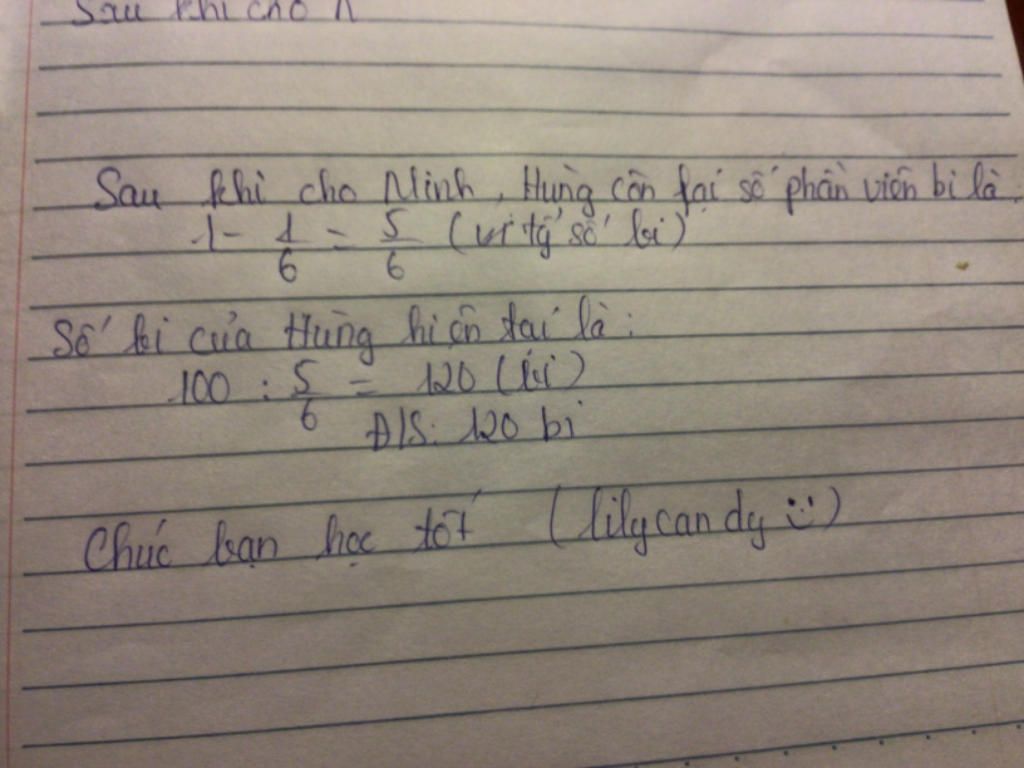 Sau khi cho N
Sau khi cho Minh, Hưng còn lại số phần viên bi là.
1 - 1/6 = 5/6 (vì tỷ số bi)
Số bi của Hưng hiện tại là:
100 : 5/6 = 120 (bi)
Đ/S: 120 bi
Chúc bạn học tốt (lilycandy :))